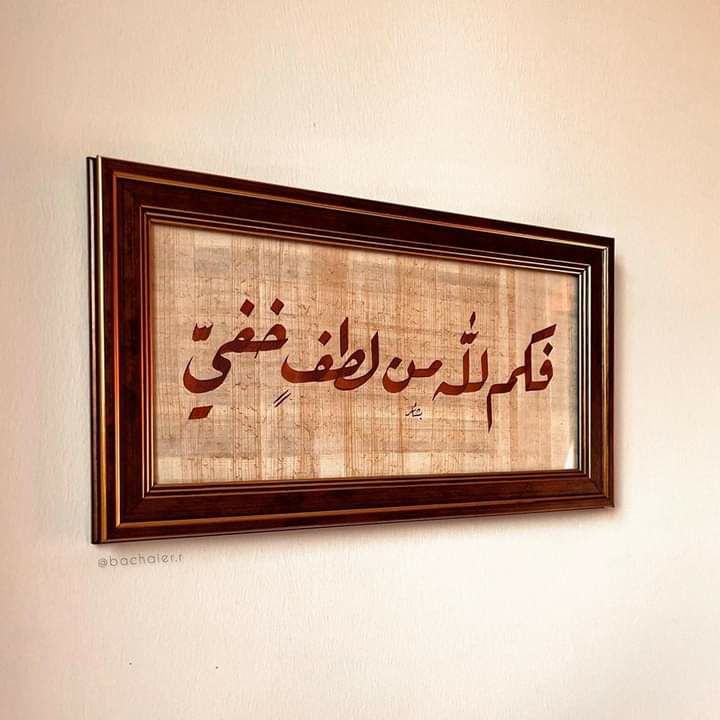 فكم لله من لطفٍ خفيّ
بشائر
@bachaier.r